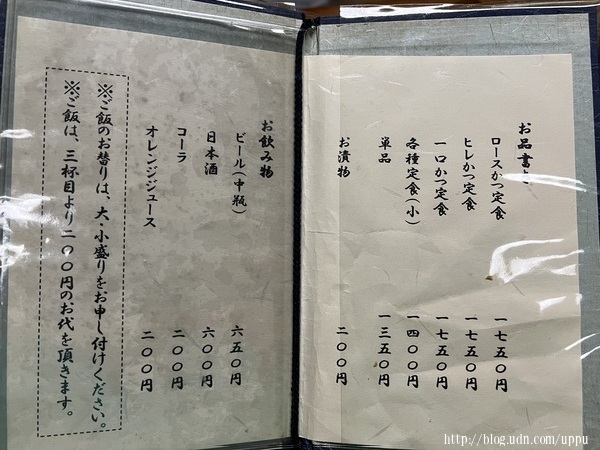 お品書き
ロースかつ定食 一七五〇円
ヒレかつ定食 一七五〇円
一口かつ定食 一七五〇円
各種定食(小) 一四〇〇円
単品 一三五〇円
お漬物 二〇〇円
お飲み物
ビール(中瓶) 六五〇円
日本酒 六〇〇円
コーラ 二〇〇円
オレンジジュース 二〇〇円
※ご飯のお替りは、大・小盛りをお申し付けください。
※ご飯は、三杯目より二〇〇円のお代を頂きます。
http://blog.udn.com/uppu